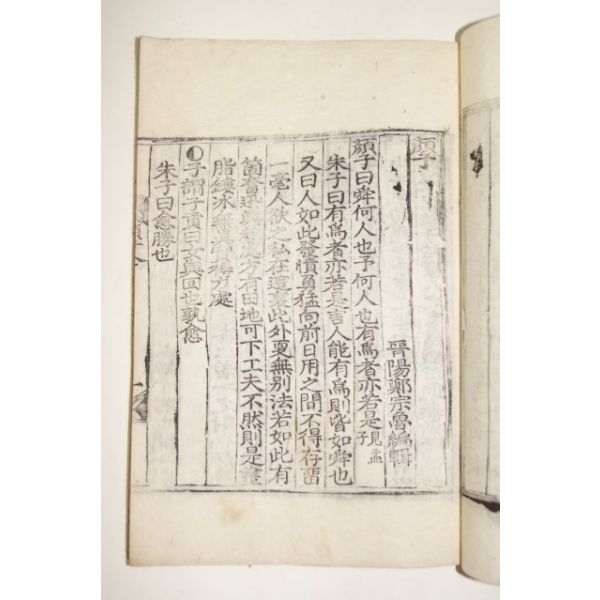 顏子
晋陽鄭宗魯編輯
顏子曰舜何人也予何人也有爲者亦若是見孟子
朱子曰有爲者亦若是言人能有爲則皆如舜也
又曰人如此發憤勇猛向前日用之間不得存留
一毫人欲之私在這裏此外更無別法若如此有
箇奮迅興起處方有田地可下工夫不然則是畫
脂鏤冰無眞實得力處
子謂子貢曰女與回也孰愈
朱子曰愈勝也